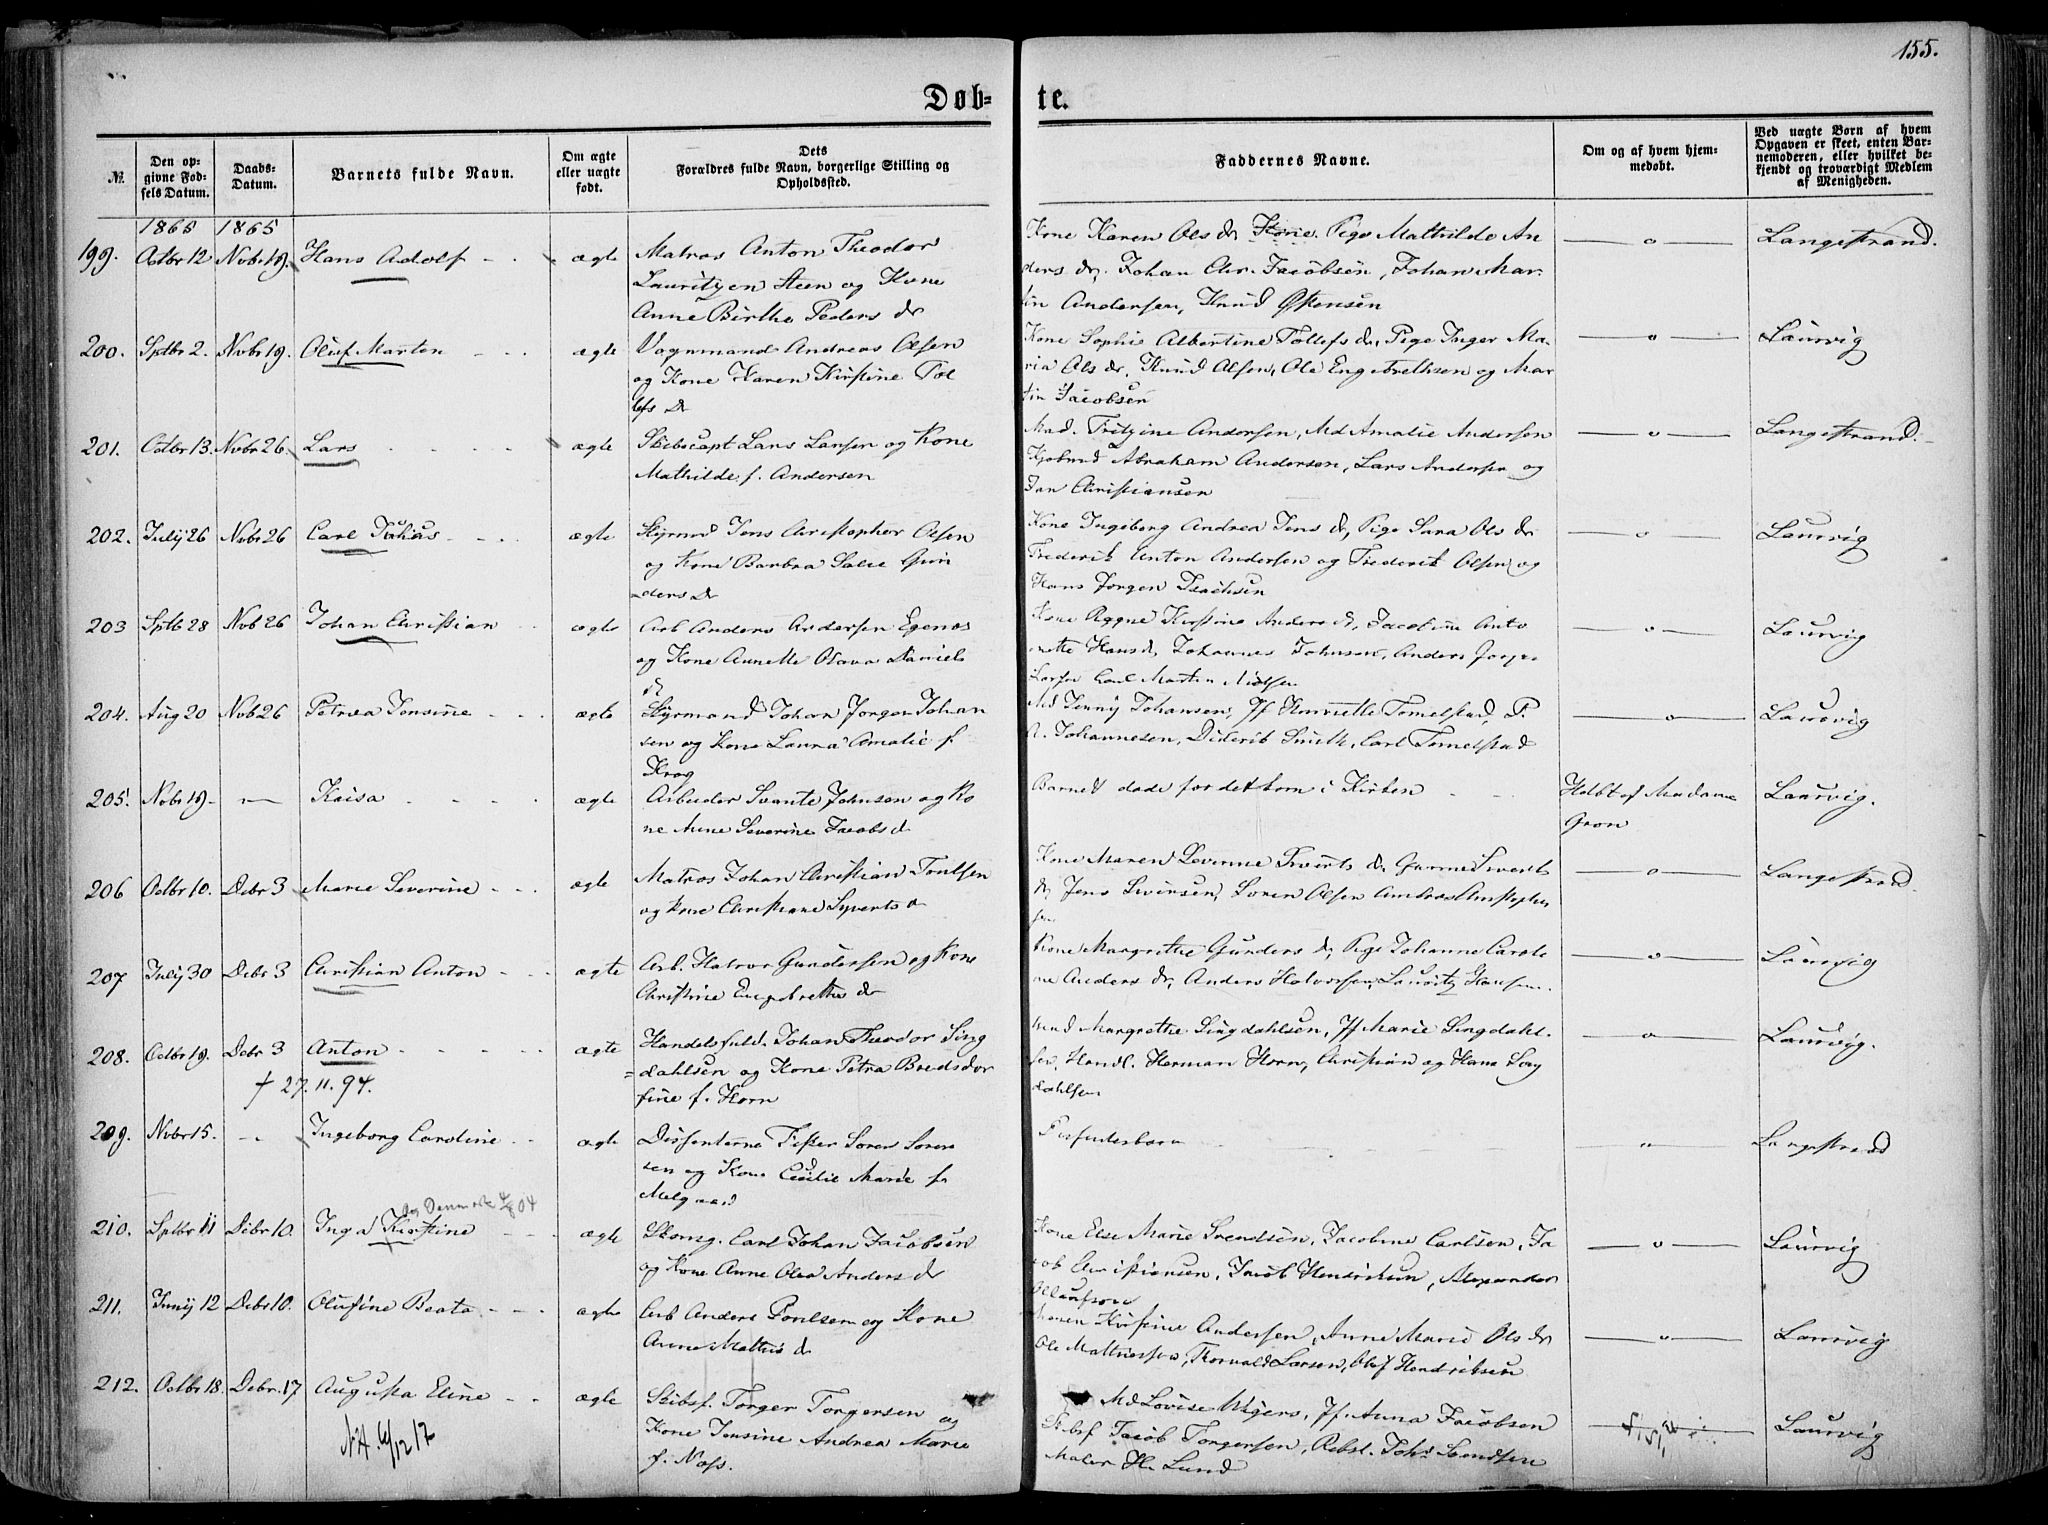 155.
Døb- te.
№.
Den opgivne Fødsels Datum.
Daabs-Datum.
Barnets fulde Navn.
Om ægte eller uægte født.
Dets Forældres fulde Navn, borgerlige Stilling og Opholdssted.
Faddernes Navne.
Om og af hvem hjemmedøbt.
Ved uægte Børn af hvem Opgaven er skeet, enten Barnemoderen, eller hvilket bekjendt og troværdigt Medlem af Menigheden.
1865 1865
199. Octbr 12 Nvbr 19. Hans Adolf ægte
Matros Anton Theodor
Lauritzen Steen og Kone
Anne Birthe Peders dr
Kone Karen Ols dr Kone. Pige Mathilde An
ders dr. Johan Chr. Jacobsen, Johan Mar-
tin Andersen, Knud Østensen
—o— Langestrand.
200. Sptbr 2. Nvbr 19. Oluf Martin ægte
Vognmand Andreas Olsen
og Kone Karen Kirstine Tol
lefs dr
Kone Sophie Albertine Tollefs dr, Pige Inger Ma-
ria Ols dr, Knud Olsen, Ole Engebrethsen og Mar
tin Jacobsen
—o— Laurvig
201. Octbr 13. Nvbr 26 Lars ægte
Skibscapt Lars Larsen og Kone
Mathilde f. Andersen
Mad. Fritzine Andersen, Md Amalie Andersen
Kjøbmd Abraham Andersen, Lars Andersen og
Jan Christiansen
—o— Langestrand.
202. July 26 Nvbr 26 Carl Julius ægte
Styrmd Jens Christopher Olsen
og Kone Barbra Salie Gun
ders dr
Kone Ingeborg Andrea Jens dr, Pige Sara Ols dr
Frederik Anton Andersen og Frederik Olsen og
Hans Jørgen Isachsen
—o— Laurvig
203 Sptb 28 Nvb 26 Johan Christian ægte
Arb Anders Andersen Egenes
og Kone Annette Olava Daniels
dr
Kone Kirstine Anders dr, Jacobine Anto
nette Hans dr, Johannes Johnsen, Anders Jørgen
Larsen Carl Martin Nielsen
—o— Laurvig
204. Aug 20 Nvb 26 Petrea Jensine ægte
Styrmand Johan Jørgen Johan
sen og Kone Laura Amalie f.
Krog
Md Jenny Johansen, Jf Henriette Tomelstad, P.
A. Johannesen, Diderik Smith, Carl Tomelstad
—o— Laurvig
205. Nvbr 19. — Kaisa ægte
Arbeider Svante Johnsen og Ko
ne Anne Severine Jacobs d
Barnet døde før det kom i Kirken
Hdbt af Madame
Gron
Laurvig.
206 Octbr 10. Debr 3 Marie Severine ægte
Matros Johan Christian Poulsen
og Kone Christiane Syverts d
Kone Maren Severine Siverts dr, Siverts
dr, Jens Sivirsen, Søren Olsen
sen
—o— Langestrand
207 July 30 Debr 3 Christian Anton ægte
Arb. Halvor Gundersen og Kone
Christine Engebreths dr
Kone Margrethe Gunders dr, Pige Johanne Caroli
ne Anders dr, Anders Halvorsen, Lauritz Hansen.
—o— Laurvig
208. Octbr 19. Debr 3 Anton ægte
† 27. 11. 94.
Handelsfuld. Johan Theodor Sing
=dahlsen og Kone Petra Bredsdor
fine f. Horn
Md Margrethe Singdahlsen, Jf Marie Singdahl-
sen, Handl. Herman Horn, Christian og Hans Sing
dahlsen
—o— Laurvig.
209. Nvbr 15. — Ingeborg Caroline ægte
Dissenterne Fisker Søren Søren
sen og Kone Cecilie Marie f.
Melgaard
Dissenterbarn
Langestrand
Danmark 4/8 04
210. Sptbr 11 Debr 10. Inga Kirstine ægte
Skomg. Carl Johan Jacobsen
og Kone Anne Olea Anders dr
Kone Else Marie Svendsen, Jacobine Carlsen, Ja
cob Christiansen, Jacob Hendriksen, Alexander
—o— Laurvig
211. Juny 12 Debr 10. Olufine Beata ægte
Arb Anders Poulsen og Kone
Anne Mathis dr
Maren Kirstine Andersen, Anne Marie Ols dr
Ole Mathiesen, Thorvald Larsen, Oluf Hendriksen
—o— Laurvig
212. Octbr 18. Debr. 17 Augusta Eline ægte
Skibsf. Torger Torgersen og
Kone Jensine Andrea Marie
f. Næss.
Md Lovise Wigers, Jf. Anna Jacobsen
Skbsf Jacob Torgersen, Rebsl. Johs Svendsen
Maler H. Lund
Laurvig